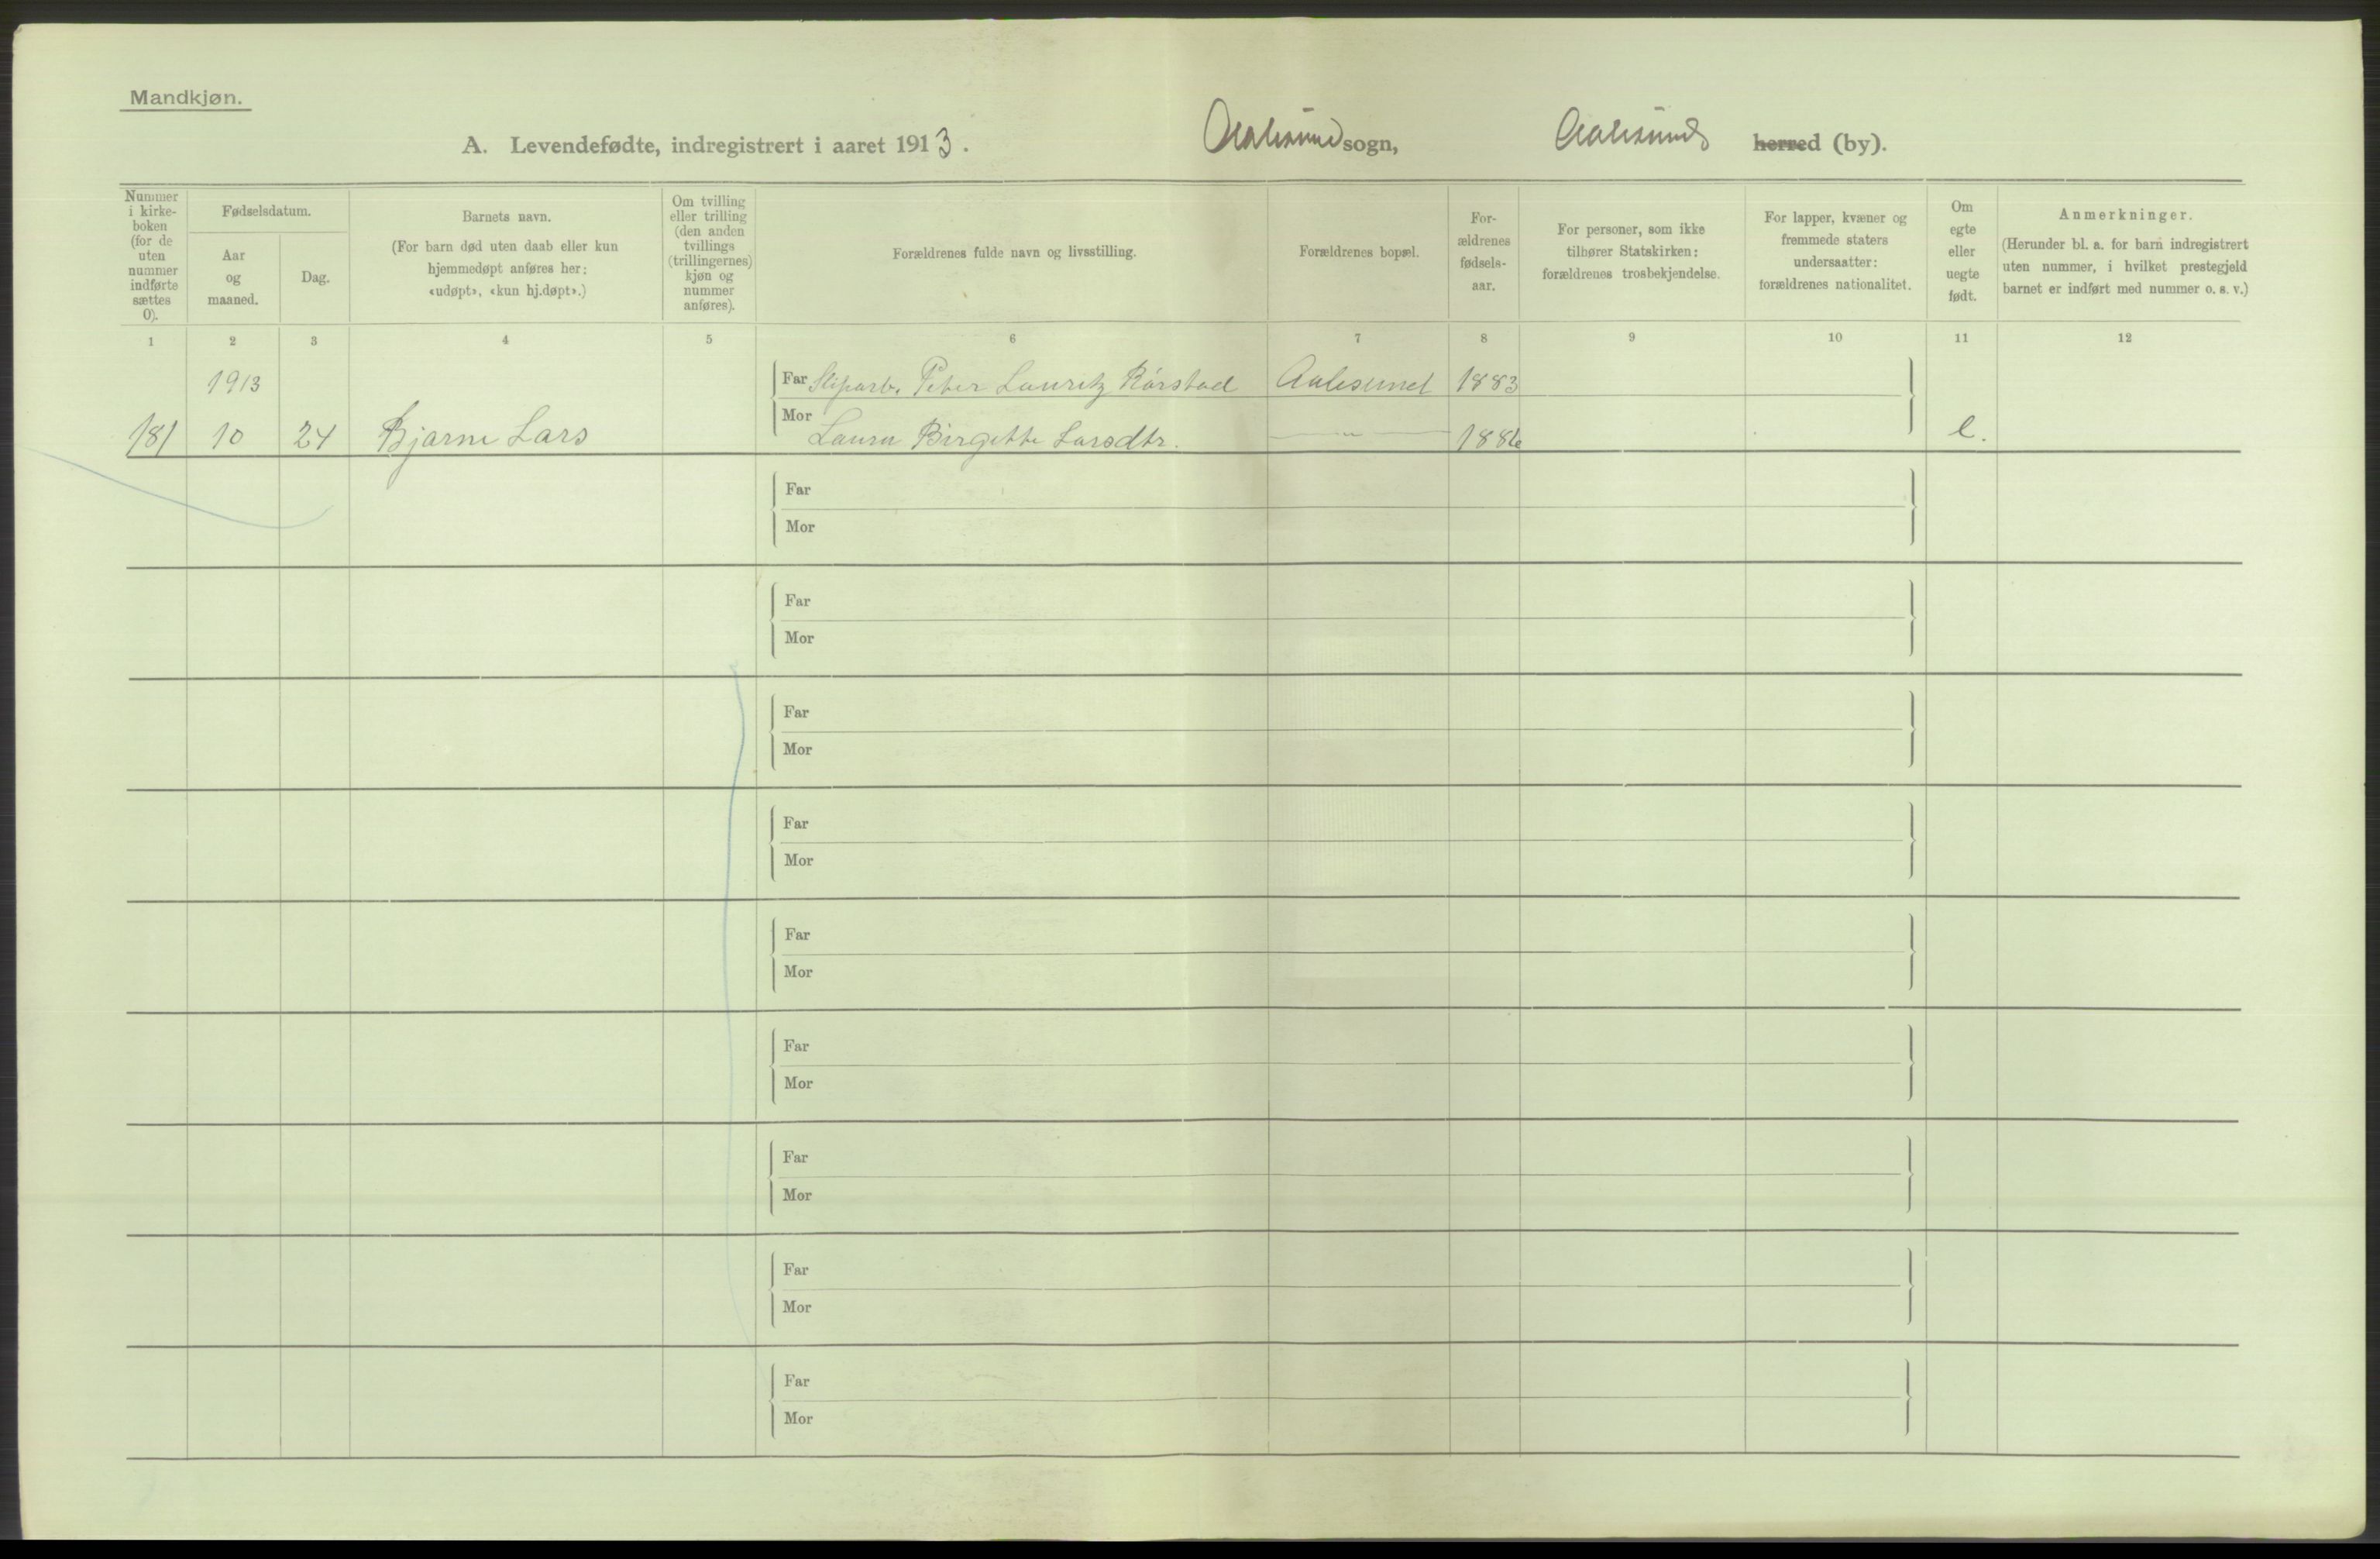 Mandkjøn.
A. Levendefødte, indregistrert i aaret 1913. Aalesund sogn, Aalesund herred (by).
Nummer i kirke- boken (for de uten nummer indførte sættes 0).
Fødselsdatum.
Aar og maaned.
Dag.
Barnets navn.
(For barn død uten daab eller kun hjemmedøpt anføres her: «udøpt», «kun hj.døpt».)
Om tvilling eller trilling (den anden tvillings (trillingernes) kjøn og nummer anføres).
Forældrenes fulde navn og livsstilling.
Forældrenes bopæl.
For- ældrenes fødsels- aar.
For personer, som ikke tilhører Statskirken: forældrenes trosbekjendelse.
For lapper, kvæner og fremmede staters undersaatter: forældrenes nationalitet.
Om egte eller uegte født.
Anmerkninger.
(Herunder bl. a. for barn indregistrert uten nummer, i hvilket prestegjeld barnet er indført med nummer o. s. v.)
1 2 3 4 5 6 7 8 9 10 11 12
1913 Far Peter Lauritz Rørstad Aalesund 1883
181 10 24 Bjarne Lars Mor Laura Birgitte Larsdtr. — " — 1886 e.
Far
Mor
Far
Mor
Far
Mor
Far
Mor
Far
Mor
Far
Mor
Far
Mor
Far
Mor
Far
Mor